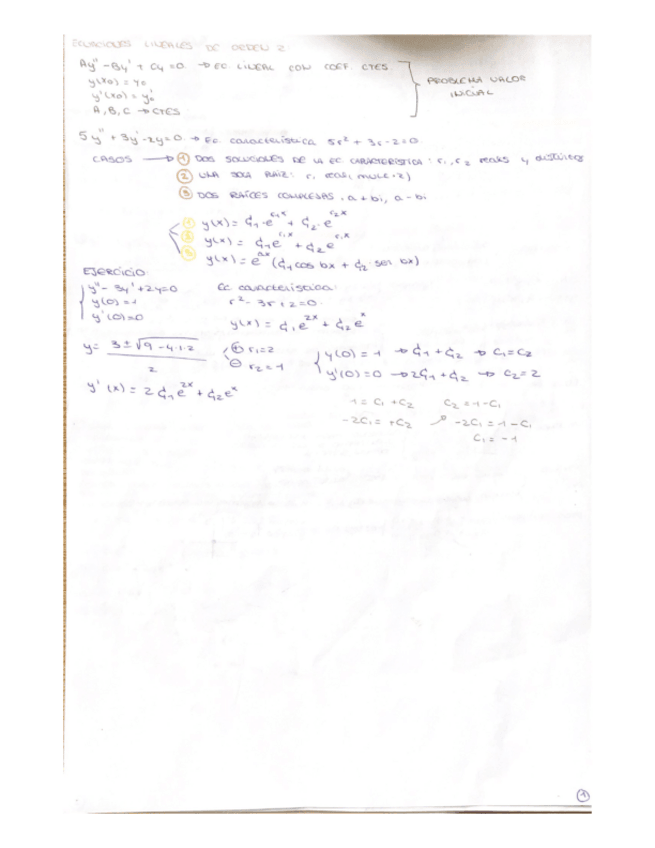 ECUACIONES LINEALES DE ORDEN 2
Ay'' - By' + Cy = 0 → EC LINEAL CON COEF CTES.
y(x0) = y0
y'(x0) = y'0
A, B, C → CTES
PROBLEMA VALOR
INICIAL
5y'' + 3y' - 2y = 0 → Ec. característica 5r² + 3r - 2 = 0
CASOS → ① DOS SOLUCIONES DE LA EC. CARACTERÍSTICA: r1, r2 reales y distintos
② UNA SOLA RAIZ: r, real, mult. 2)
③ DOS RAÍCES COMPLEJAS. a + bi, a - bi
① y(x) = C1·e^r1x + C2·e^r2x
② y(x) = C1e^r1x + C2e^r1x
③ y(x) = e^ax (C1 cos bx + C2 sen bx)
EJERCICIO:
y'' - 3y' + 2y = 0 Ec característica:
y(0) = 1 r² - 3r + 2 = 0
y'(0) = 0 y(x) = C1e^2x + C2e^x
y = 3 ± √9 - 4·1·2 / 2
⊕ r1 = 2
⊖ r2 = 1
y(0) = 1 → C1 + C2 → C1 = C2
y'(0) = 0 → 2C1 + C2 → C2 = 2
y'(x) = 2C1e^2x + C2e^x
1 = C1 + C2 C2 = 1 - C1
-2C1 = +C2 → -2C1 = 1 - C1
C1 = -1
①